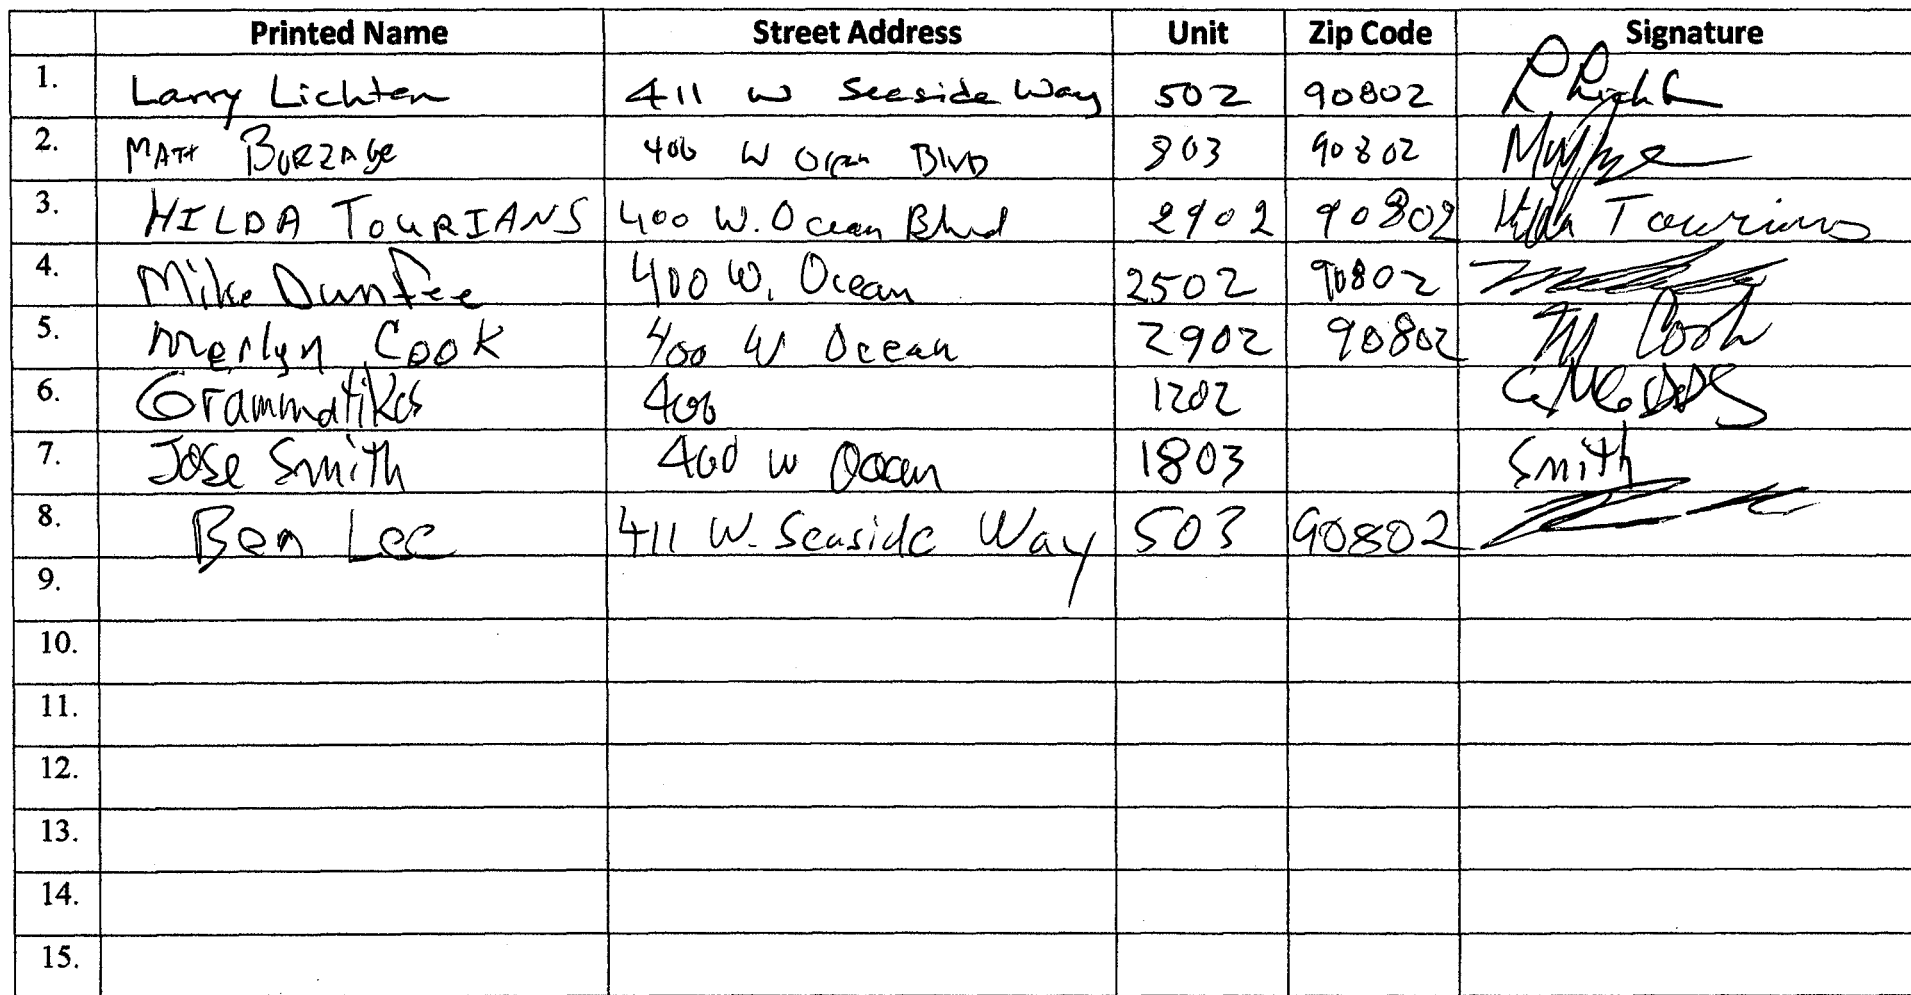 Printed Name Street Address Unit Zip Code Signature
1. Larry Lichten 411 W Seaside Way 502 90802
2. MATT BURZAGE 400 W Ocean BLVD 803 90802
3. HILDA TOURIANS 400 W. Ocean Blvd 2902 90802 Hilda Tourians
4. Mike Dunfee 400 W. Ocean 2502 90802
5. Merlyn Cook 400 W Ocean 2902 90802 M Cook
6. Grammatikos 400 1202
7. Jose Smith 400 W Ocean 1803 Smith
8. Ben Lee 411 W. Seaside Way 503 90802
9.
10.
11.
12.
13.
14.
15.